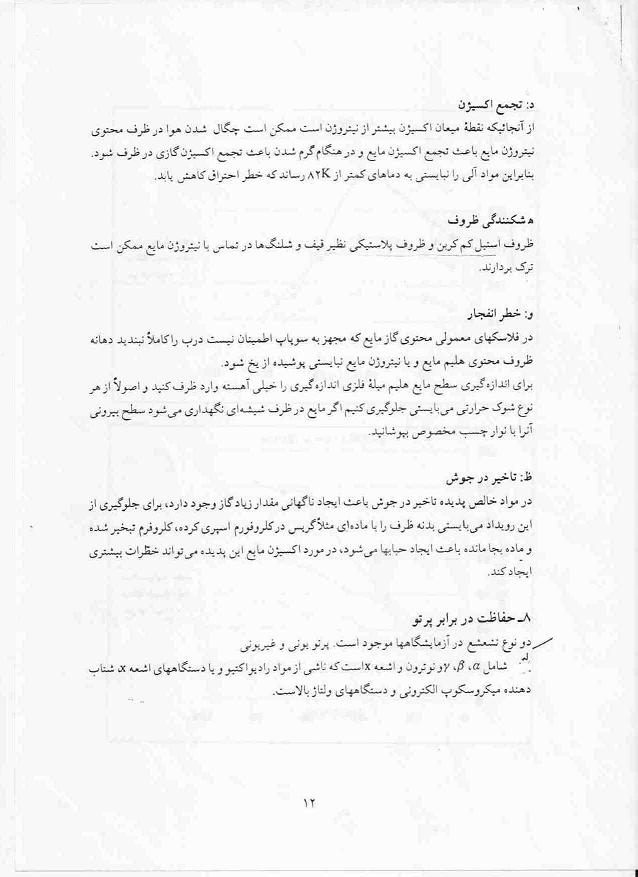 د: تجمع اکسیژن
از آنجائیکه نقطهٔ میعان اکسیژن بیشتر از نیتروژن است ممکن است چگال شدن هوا در ظرف محتوی
نیتروژن مایع باعث تجمع اکسیژن مایع و در هنگام گرم شدن باعث تجمع اکسیژن گازی در ظرف شود.
بنابراین مواد آلی را نبایستی به دماهای کمتر از ۸۲K رساند که خطر احتراق کاهش یابد.
ه شکنندگی ظروف
ظروف استیل کم کربن و ظروف پلاستیکی نظیر قیف و شلنگ‌ها در تماس با نیتروژن مایع ممکن است
ترک بردارند.
و: خطر انفجار
در فلاسکهای معمولی محتوی گاز مایع که مجهز به سوپاپ اطمینان نیست درب را کاملاً نبندید دهانه
ظروف محتوی هلیم مایع و یا نیتروژن مایع نبایستی پوشیده از یخ شود.
برای اندازه‌گیری سطح مایع هلیم میلهٔ فلزی اندازه‌گیری را خیلی آهسته وارد ظرف کنید و اصولاً از هر
نوع شوک حرارتی می‌بایستی جلوگیری کنیم اگر مایع در ظرف شیشه‌ای نگهداری می‌شود سطح بیرونی
آنرا با نوار چسب مخصوص بپوشانید.
ظ: تاخیر در جوش
در مواد خالص پدیده تاخیر در جوش باعث ایجاد ناگهانی مقدار زیاد گاز وجود دارد، برای جلوگیری از
این رویداد می‌بایستی بدنه ظرف را با ماده‌ای مثلاً گریس در کلروفورم اسپری کرده، کلروفرم تبخیر شده
و ماده بجا مانده باعث ایجاد حبابها می‌شود، در مورد اکسیژن مایع این پدیده می‌تواند خطرات بیشتری
ایجاد کند.
۸ـ حفاظت در برابر پرتو
دو نوع تشعشع در آزمایشگاهها موجود است. پرتو یونی و غیریونی
شامل α، β، γ و نوترون و اشعه x است که ناشی از مواد رادیواکتیو و یا دستگاههای اشعه x، شتاب
دهنده میکروسکوپ الکترونی و دستگاههای ولتاژ بالاست.
۱۲